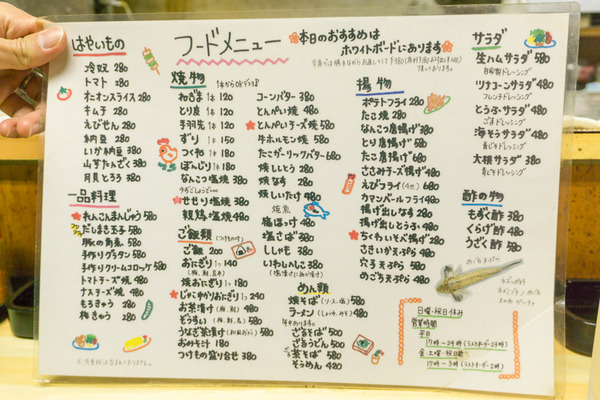 フードメニュー
本日のおすすめは
ホワイトボードにあります
はやいもの
冷奴 280
トマト 280
オニオンスライス 280
キムチ 280
えびせん 280
納豆 280
いか納豆 380
山芋たんざく 380
月見とろろ 380
一品料理
れんこんまんじゅう 580
だしまき玉子 580
豚の角煮 580
手作りグラタン 580
手作りクリームコロッケ 580
トマトチーズ焼 480
ナスチーズ焼 480
もろきゅう 280
梅きゅう 280
焼物
1本からOKです
ねぎま 1本 120
とり皮 1本 120
手羽先 1本 120
ずり 1本 150
つくね 1本 180
ぼんじり 1本 180
なんこつ塩焼 380
せせり塩焼 380
親鶏塩焼 480
ご飯類
ご飯 200
おにぎり 1コ 140
焼おにぎり 1コ 180
じゃこかりおにぎり 1コ 240
お茶漬け 480
ぞうすい 580
うなぎ茶漬け 580
おみそ汁 180
つけもの盛り合せ 380
コーンバター 380
とんぺい焼 480
とんぺいチーズ焼 580
牛ホルモン焼 580
たこガーリックバター 680
焼ししとう 280
焼なす 280
焼しいたけ 480
焼魚
塩ほっけ 480
塩さば 380
ししゃも 380
いわしんこ 380
めん類
焼そば 580
ラーメン 480
ざるそば 500
ざるうどん 500
茶そば 580
そうめん 480
揚物
ポテトフライ 280
たこ焼 280
なんこつ唐揚げ 380
とり唐揚げ 580
たこ唐揚げ 580
ささみチーズ揚げ 480
えびフライ 680
カマンベールフライ 480
揚げ出しなす 280
揚げ出しとうふ 480
ちくわいそべ揚げ 280
さきいか天ぷら 480
穴子天ぷら 580
めごち天ぷら 480
サラダ
生ハムサラダ 580
自家製ドレッシング
ツナコーンサラダ 480
フレンチドレッシング
とうふサラダ 480
ごまドレッシング
海そうサラダ 480
青じそドレッシング
大根サラダ 380
青じそドレッシング
酢の物
もずく酢 380
くらげ酢 480
うざく酢 580
日曜・祝日休み
営業時間
平日
17時〜24時(ラストオーダー23時)
金・土曜・祝日前
17時〜3時(ラストオーダー2時)